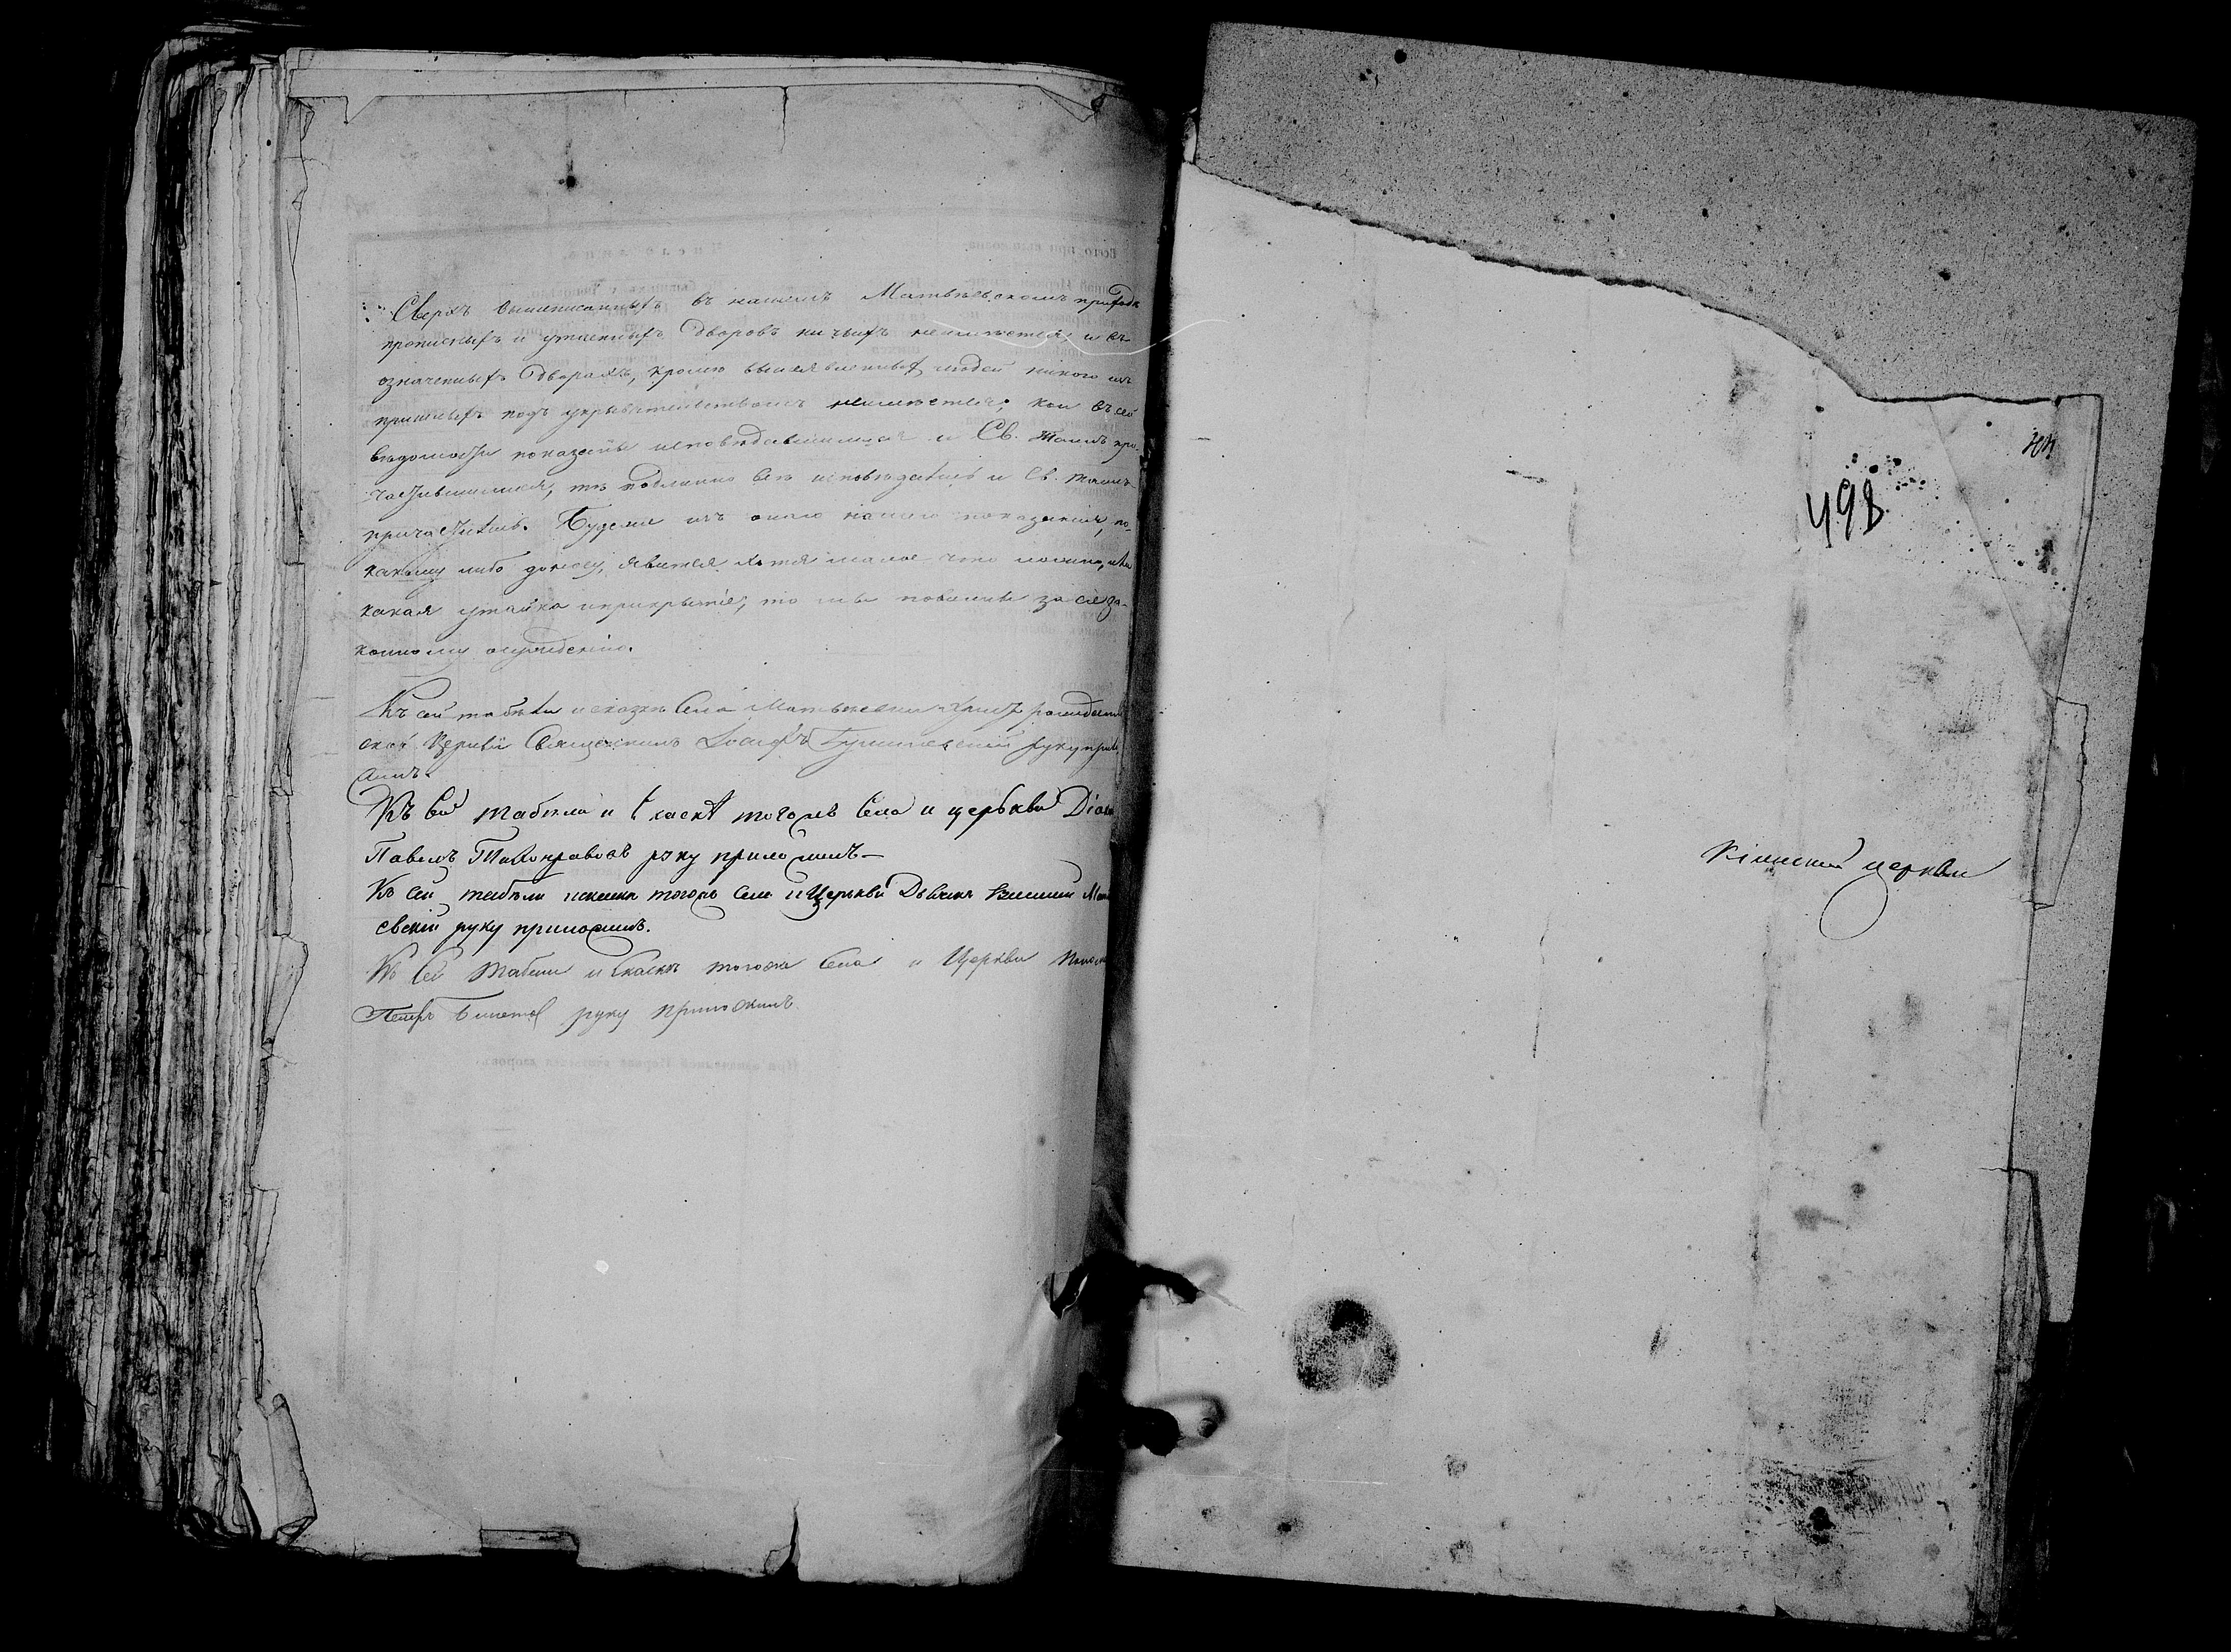 Сверхъ вышеписанныхъ въ нашемъ Матвѣевскомъ приходѣ
прописныхъ и утаенныхъ дворовъ ничьихъ неимѣется, и въ
означенныхъ дворахъ, кромѣ вышеявленныхъ людей никого изъ
пришлыхъ подъ укрывательствомъ неимѣется; кои въ сей
вѣдомости показаны исповѣдавшимися и Св. Таинъ при-
частившимися, тѣ подлинно всѣ исповѣдались и Св. Таинъ
причастились. Будеже изъ онаго нашего показанія, по
какому либо доносу, явится хотя малое что ложно, или
какая утайка и прикрытіе, то мы повинны за сіе за-
конному осужденію.
Къ сей табели и сказкѣ села Матвѣевки Христорождествен
ской церкви Священникъ Іосифъ руку прило
жилъ.
Къ сей табели и скаскѣ тогожъ села и церькви
Павелъ руку приложилъ
Къ сей табели и скаскѣ тогожъ села и Церькви Дьячекъ
свскій руку приложилъ.
Къ сей табели и скаскѣ тогожъ села и Церкви
Петръ руку приложилъ
498
церкви